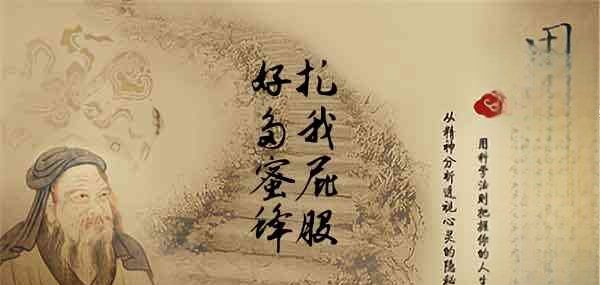 好多蜜蜂
扎我屁股
从精神分析透视心灵的隐秘
用科学法则把握你的人生